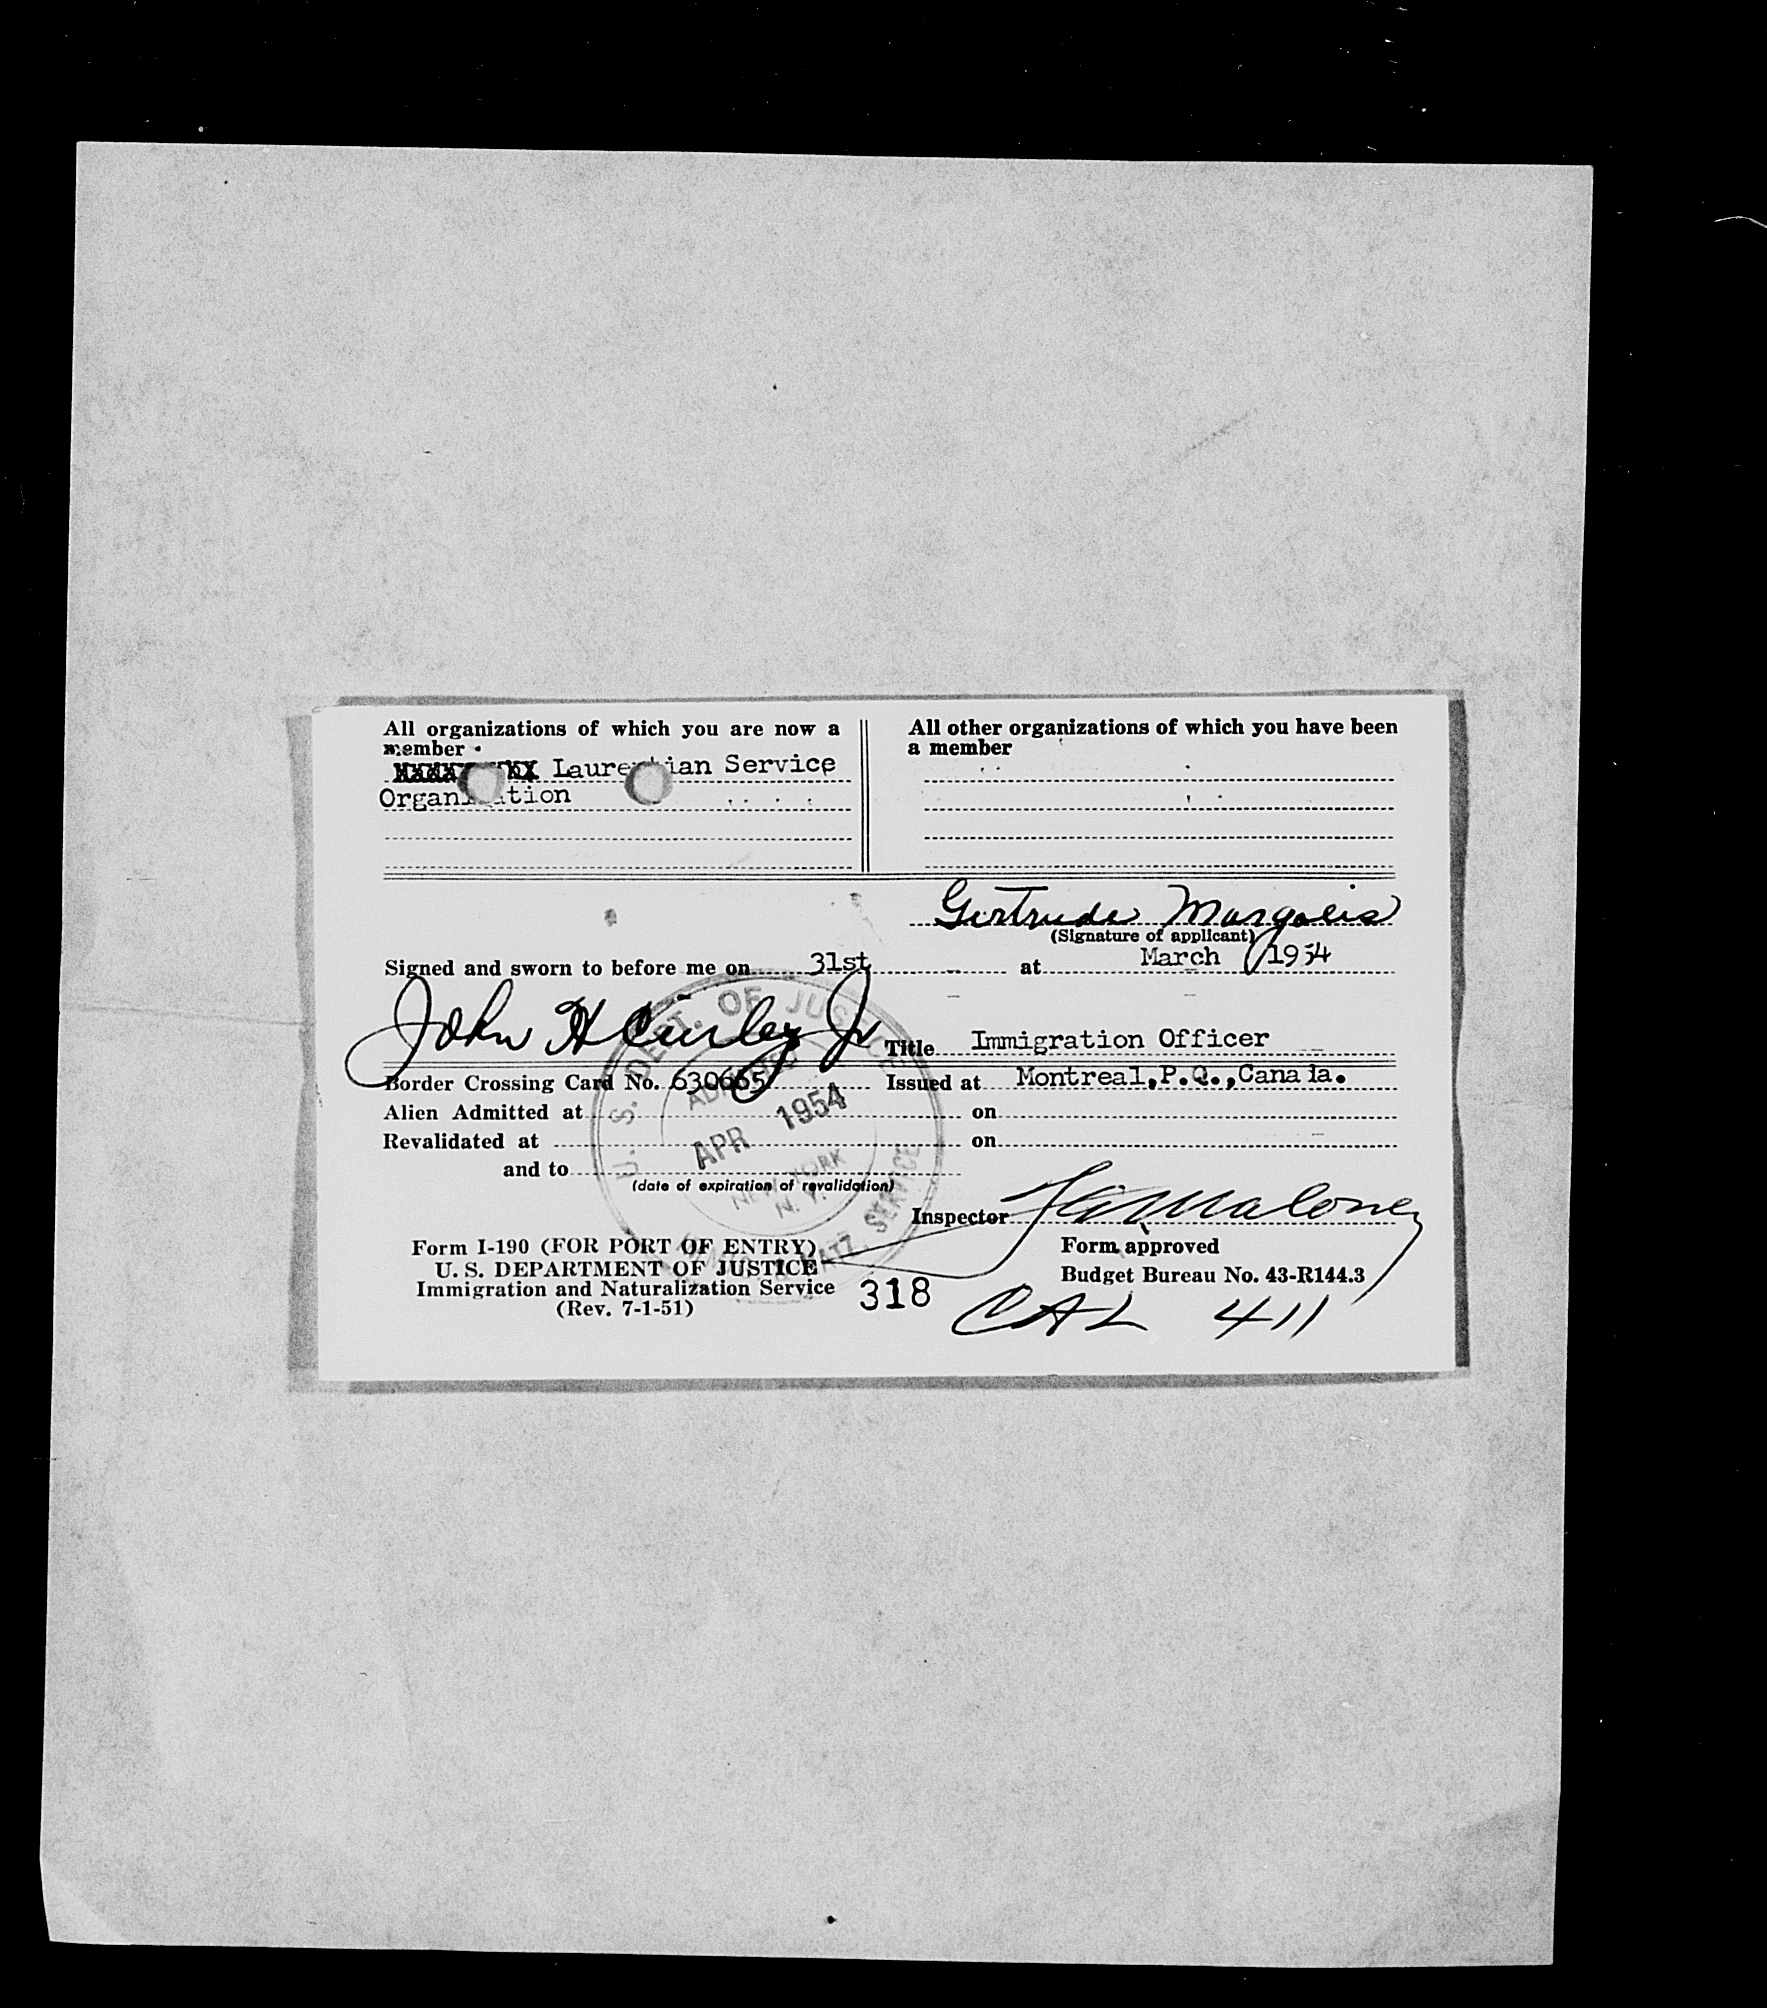 All organizations of which you are now a
member
Laurentian Service
Organization
All other organizations of which you have been
a member
Gertrude Margolis
(Signature of applicant)
Signed and sworn to before me on 31st at March 1954
John H Curley Jr Title Immigration Officer
Border Crossing Card No. 630665 Issued at Montreal,P.Q.,Canada.
Alien Admitted at on
Revalidated at on
and to
(date of expiration of revalidation)
U. S. DEPT. OF JUSTICE
ADMITTED
APR 1954
NEW YORK
N. Y.
NATZ. SERVICE
Inspector Maloney
Form I-190 (FOR PORT OF ENTRY)
U. S. DEPARTMENT OF JUSTICE
Immigration and Naturalization Service
(Rev. 7-1-51)
318
Form approved
Budget Bureau No. 43-R144.3
CAL 411